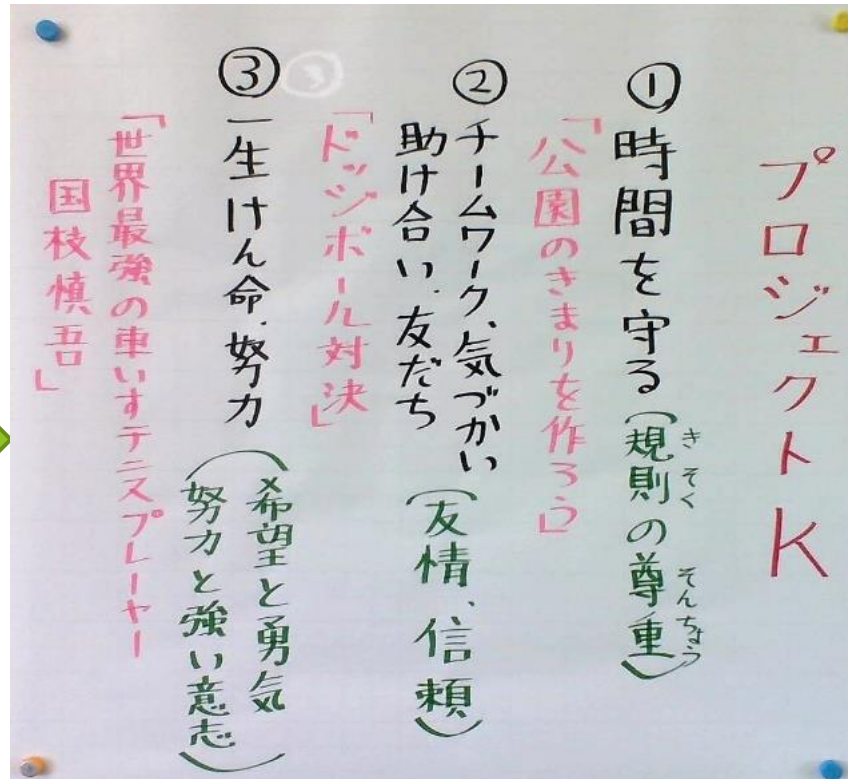 プロジェクトK
① 時間を守る(規則の尊重)
きそく そんちょう
「公園のきまりを作ろう」
② チームワーク、気づかい
助け合い、友だち
(友情、信頼)
「ドッジボール対決」
③
③ 一生けん命、努力
(希望と勇気
努力と強い意志)
「世界最強の車いすテニスプレーヤー
国枝慎吾」